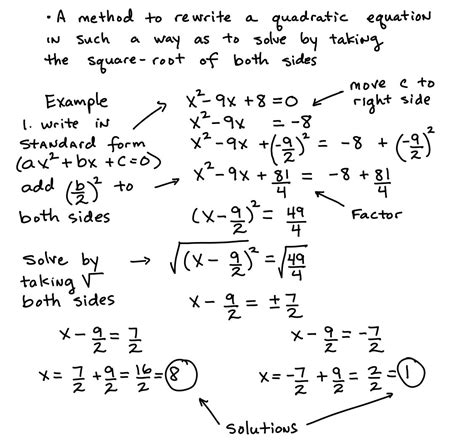 · A method to rewrite a quadratic equation
in such a way as to solve by taking
the square-root of both sides
Example
x² - 9x + 8 = 0
move c to
right side
1. write in
standard form
(ax² + bx + c = 0)
x² - 9x = -8
x² - 9x + (-9/2)² = -8 + (-9/2)²
add (b/2)² to
both sides
x² - 9x + 81/4 = -8 + 81/4
(x - 9/2)² = 49/4
Factor
Solve by
taking √
both sides
√(x - 9/2)² = √49/4
x - 9/2 = ± 7/2
x - 9/2 = 7/2
x - 9/2 = -7/2
x = 7/2 + 9/2 = 16/2 = 8
x = -7/2 + 9/2 = 2/2 = 1
solutions